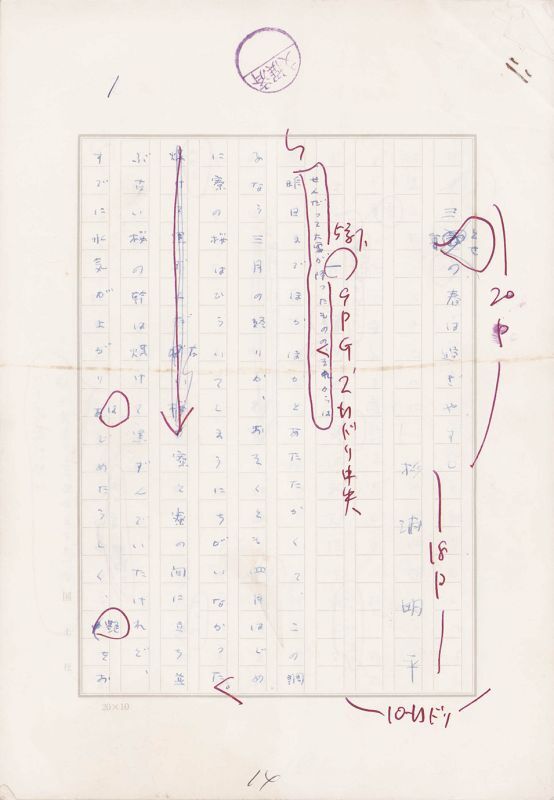 三とせの春は過ぎやすし
20P
杉浦明平
18P
10行ドリ
5字下
9PG、2行ドリ中央
せんだって大雪が降ったもののそれからは
昨日までぽかぽかとあたたかくて、この調
子なら三月の終りか、おそくとも四月はじめ
に寮の桜はひらいてしまうにちがいなかった。
寮と寮の間に立ち並
ぶ古い桜の幹は煤けて黒ずんでいたけれど、
すでに水気が上がりはじめたらしく、艶をお
20×10
14